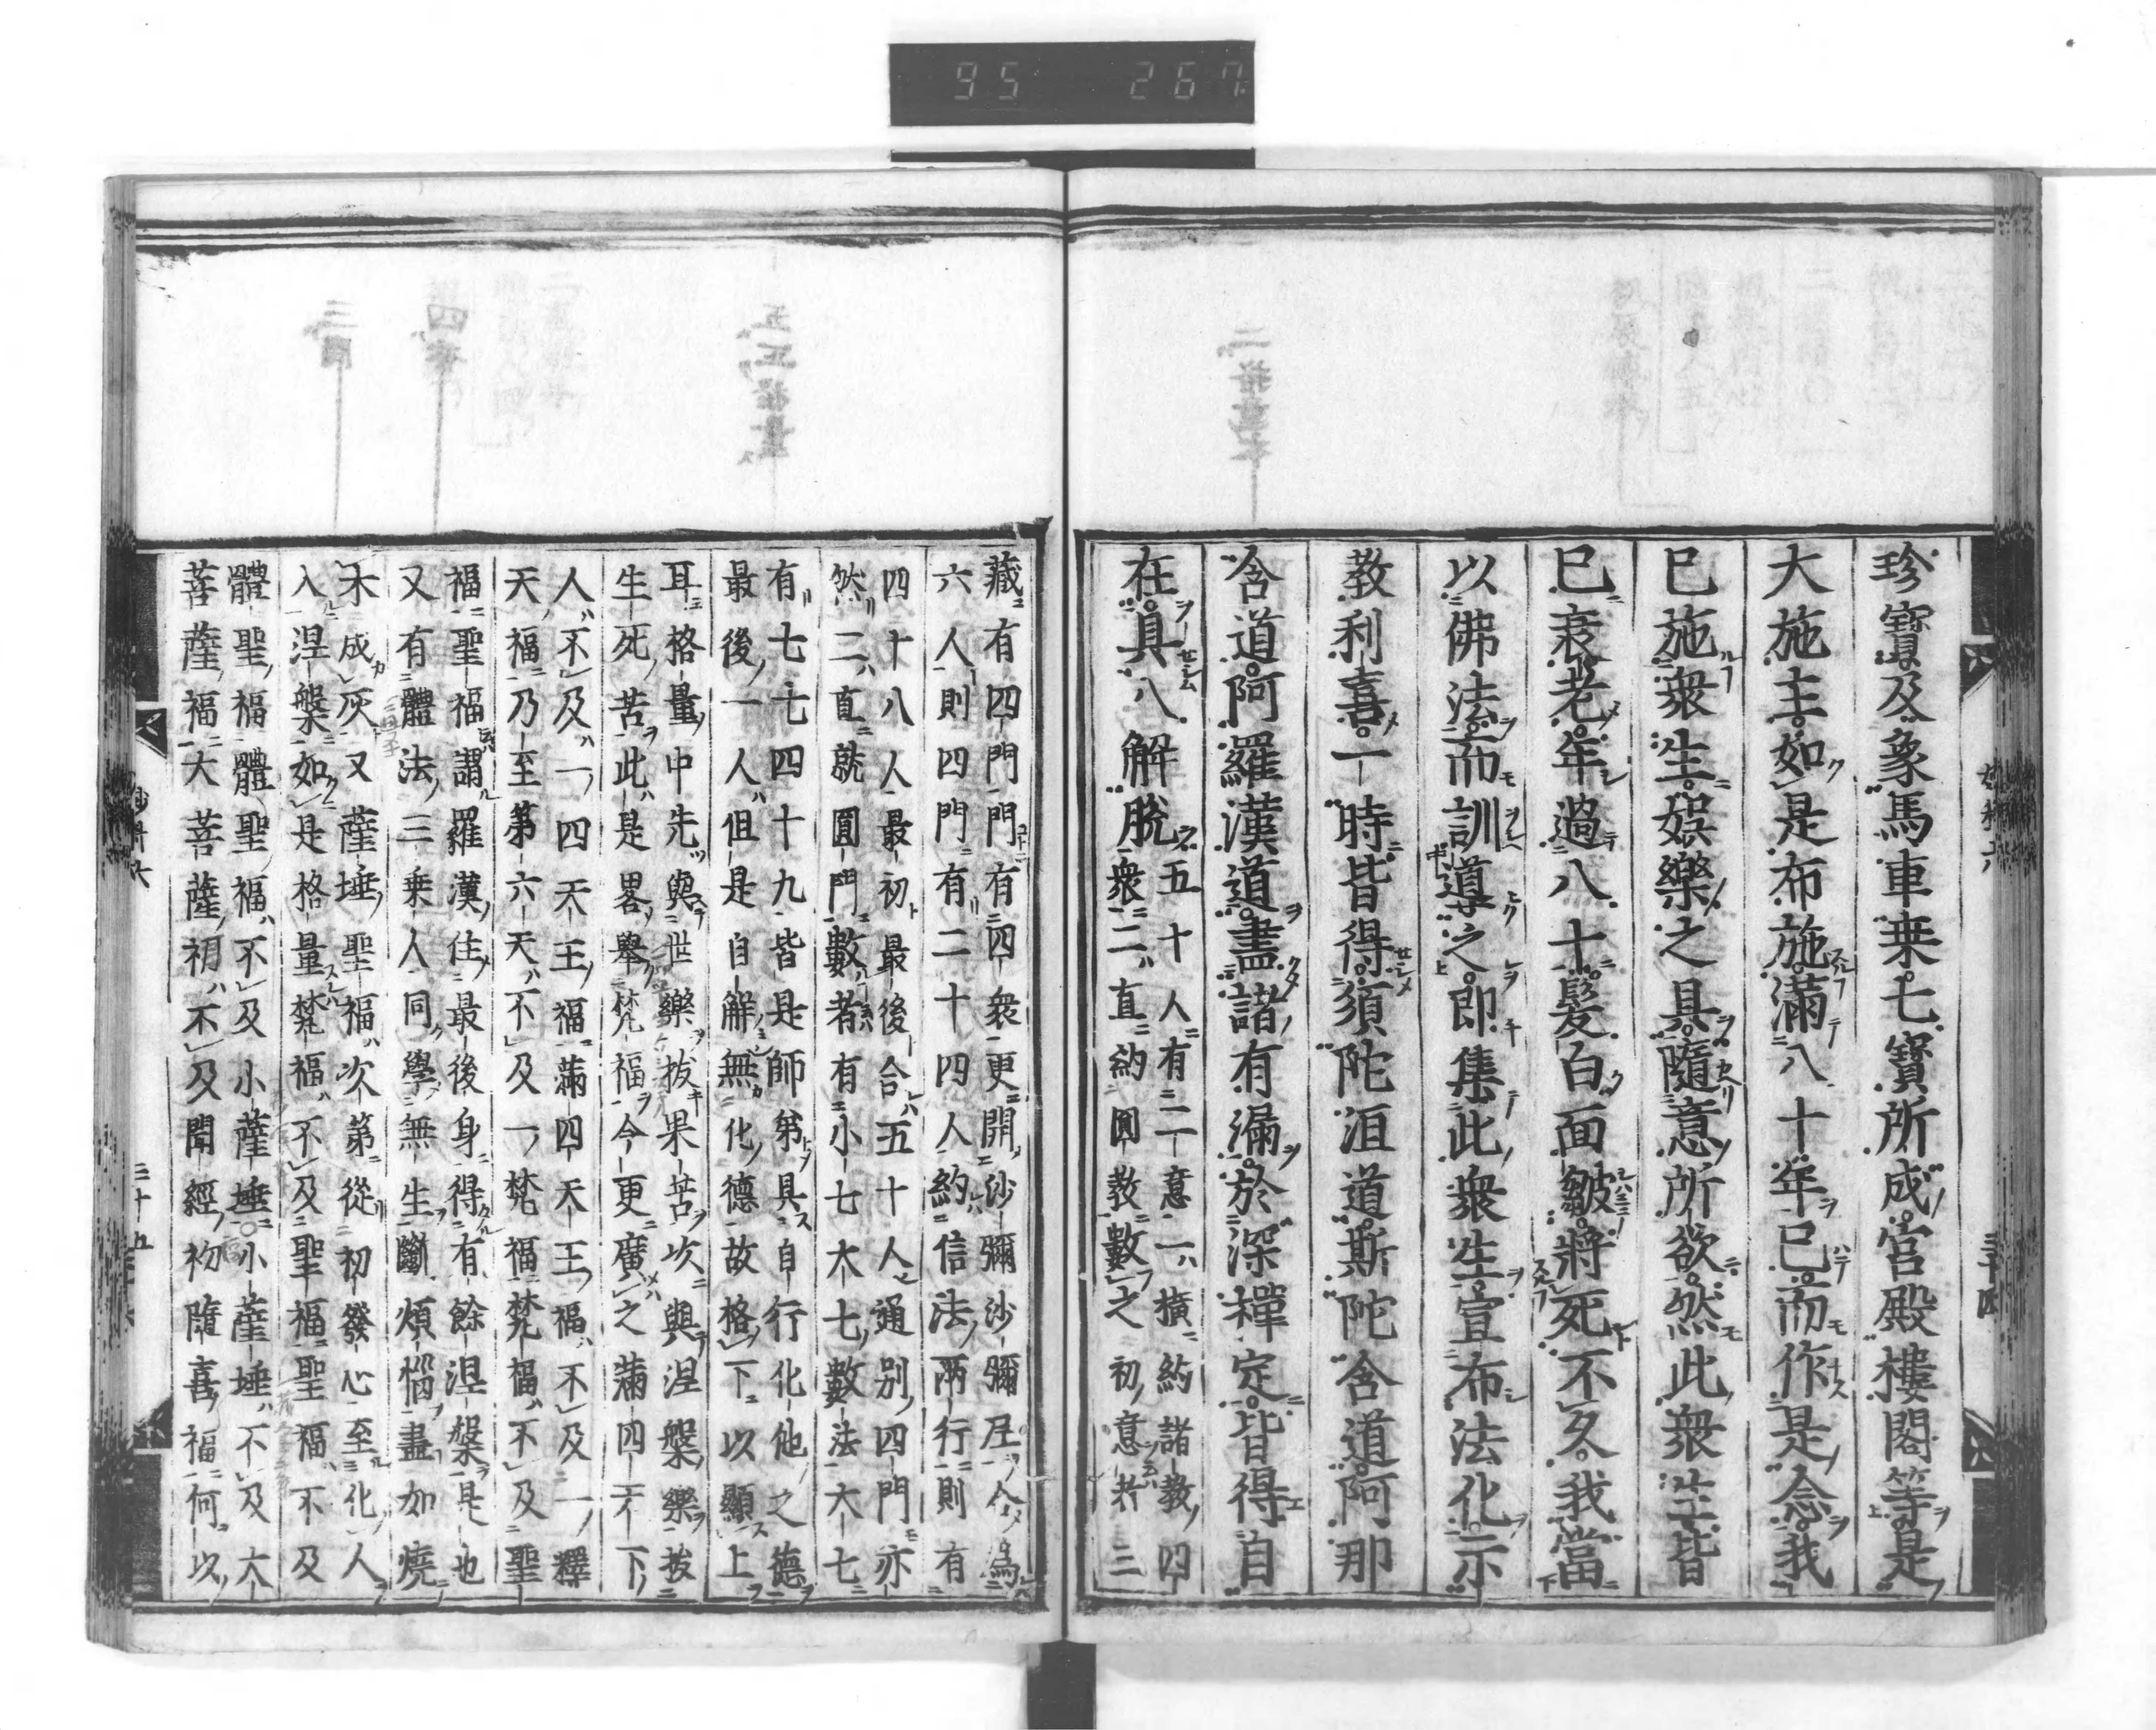 95 267
珍寶及象馬車乗七寶所成宮殿樓閣等是
大施主如是布施滿八十年已而作是念我
已施衆生娯樂之具隨意所欲然此衆生皆
已衰老年過八十髮白面皺將死不久我當
以佛法而訓導之即集此衆生宣布法化示
教利喜一時皆得須陀洹道斯陀含道阿那
含道阿羅漢道盡諸有漏於深禪定皆得自
在具八解脱
五十人有二意一擴約諸教四
衆二直約圓教數之初意者三
三十四
藏有四門門有四衆更開沙彌沙彌尼合爲
六人則四門有二十四人約信法兩行則有
四十八人最初最後合五十人通別四門亦
然二直就圓門數者有小七大七數法大七
有七七四十九皆是師弟具自行化他之德
最後一人但是自解無化德故格下以顯上
耳格量中先與世樂拔果苦次與涅槃樂拔
生死苦此是畧舉梵福今更廣之滿四天下
人不及一四天王福滿四天王福不及一釋
天福乃至第六天不及一梵福梵福不及聖
福聖福謂羅漢住最後身得有餘涅槃是也
又有體法三乗人同學無生斷煩惱盡如燒
木成灰又薩埵聖福次第從初發心至化人
入涅槃如是格量梵福不及聖福聖福不及
體聖福體聖福不及小薩埵小薩埵不及大
菩薩福大菩薩初不及聞經初隨喜福何以
三十五